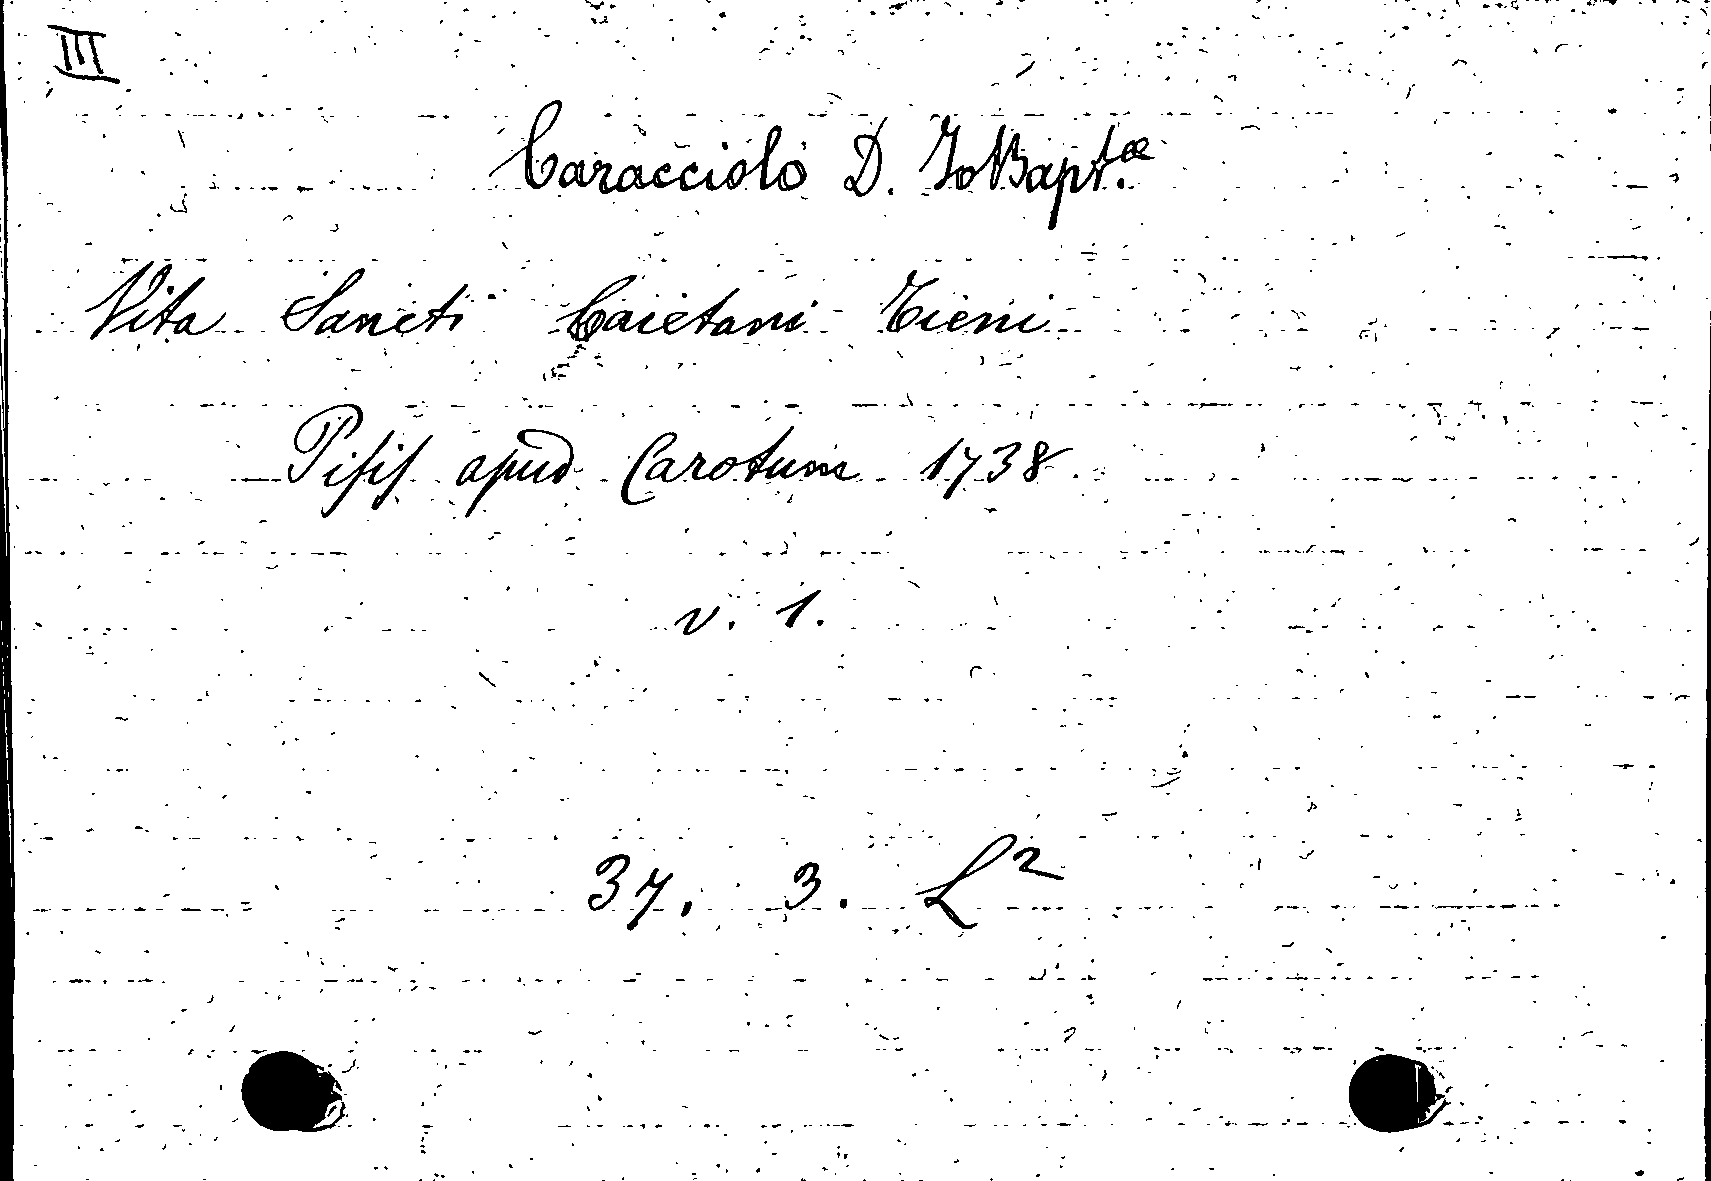 III
Caracciolo D. Jo Bapt.æ
Vita Sancti Caietani Tieni
Pisis apud Carotum 1738
v. 1.
37. 3. L²